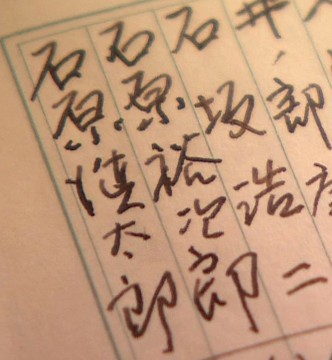 井ノ郎
石坂浩二
石原裕次郎
石原慎太郎